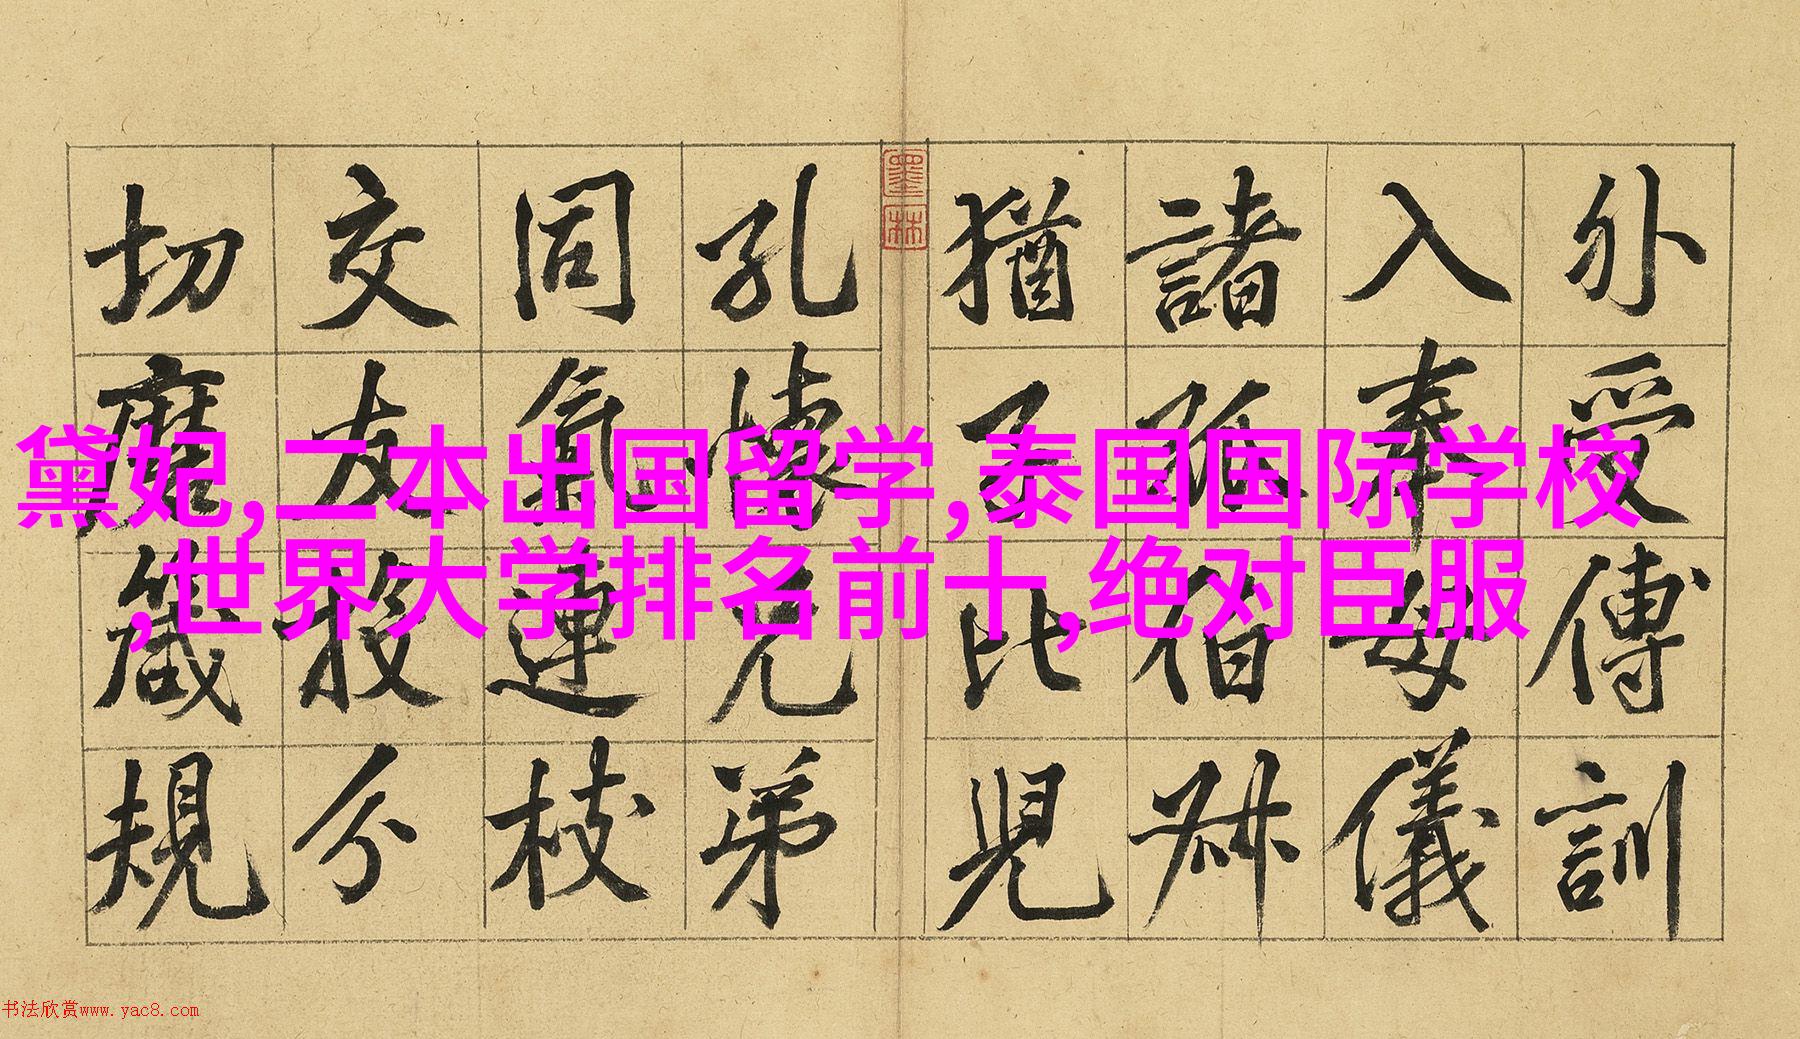 外受傅訓
入奉母儀
諸姑伯叔
猶子比兒
墨林
孔懷兄弟
同氣連枝
交友投分
切磨箴規
黛妃,二本出国留学,泰国国际学校
,世界大学排名前十,绝对臣服
书法欣赏www.yac8.com